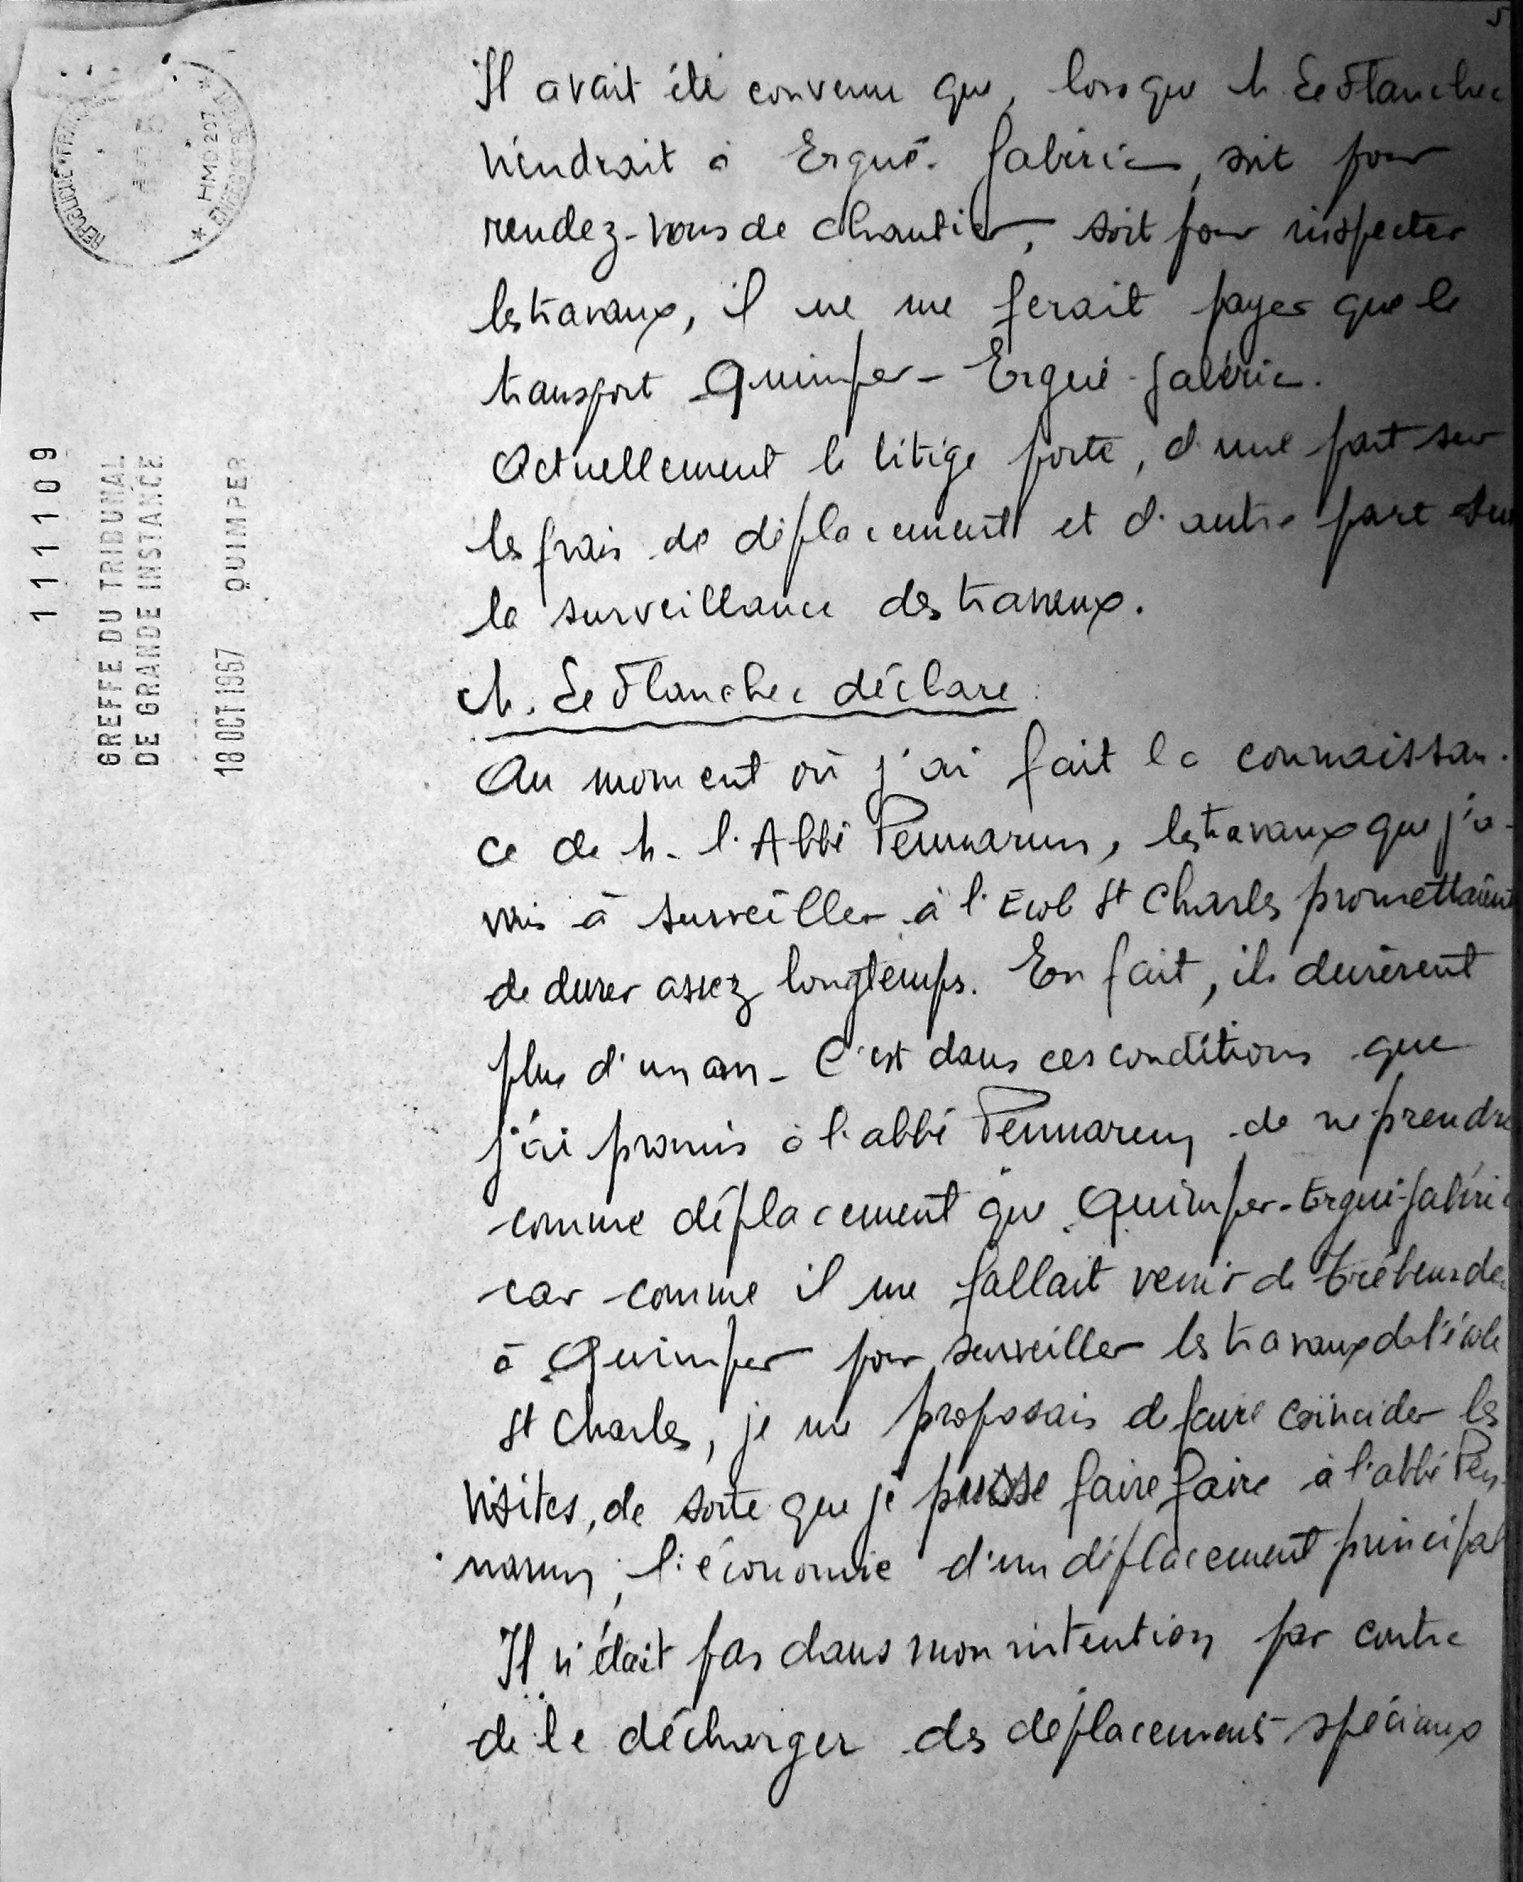 5
Il avait été convenu que, lorsque M. Le Flanchec
viendrait à Ergué-Gabéric, soit pour
rendez-vous de chantier, soit pour inspecter
les travaux, il ne me ferait payer que le
transport Quimper-Ergué-Gabéric.
Actuellement le litige porte, d'une part sur
les frais de déplacement et d'autre part sur
la surveillance des travaux.
M. Le Flanchec déclare :
Au moment où j'ai fait la connaissan-
ce de M. l'Abbé Pennarun, les travaux que j'a-
vais à surveiller à l'Ecole St Charles promettaient
de durer assez longtemps. En fait, ils durèrent
plus d'un an - C'est dans ces conditions que
j'ai promis à l'abbé Pennarun de ne prendre
comme déplacement que Quimper-Ergué-Gabéric
car comme il me fallait venir de Trébeurden
à Quimper pour surveiller les travaux de l'école
St Charles, je me proposais de faire coïncider les
visites, de sorte que je puisse faire faire à l'abbé Pen-
narun, l'économie d'un déplacement principal
Il n'était pas dans mon intention par contre
de le décharger des déplacements spéciaux
RÉPUBLIQUE
* HMD207 *
111109
GREFFE DU TRIBUNAL
DE GRANDE INSTANCE
18 OCT 1967 QUIMPER